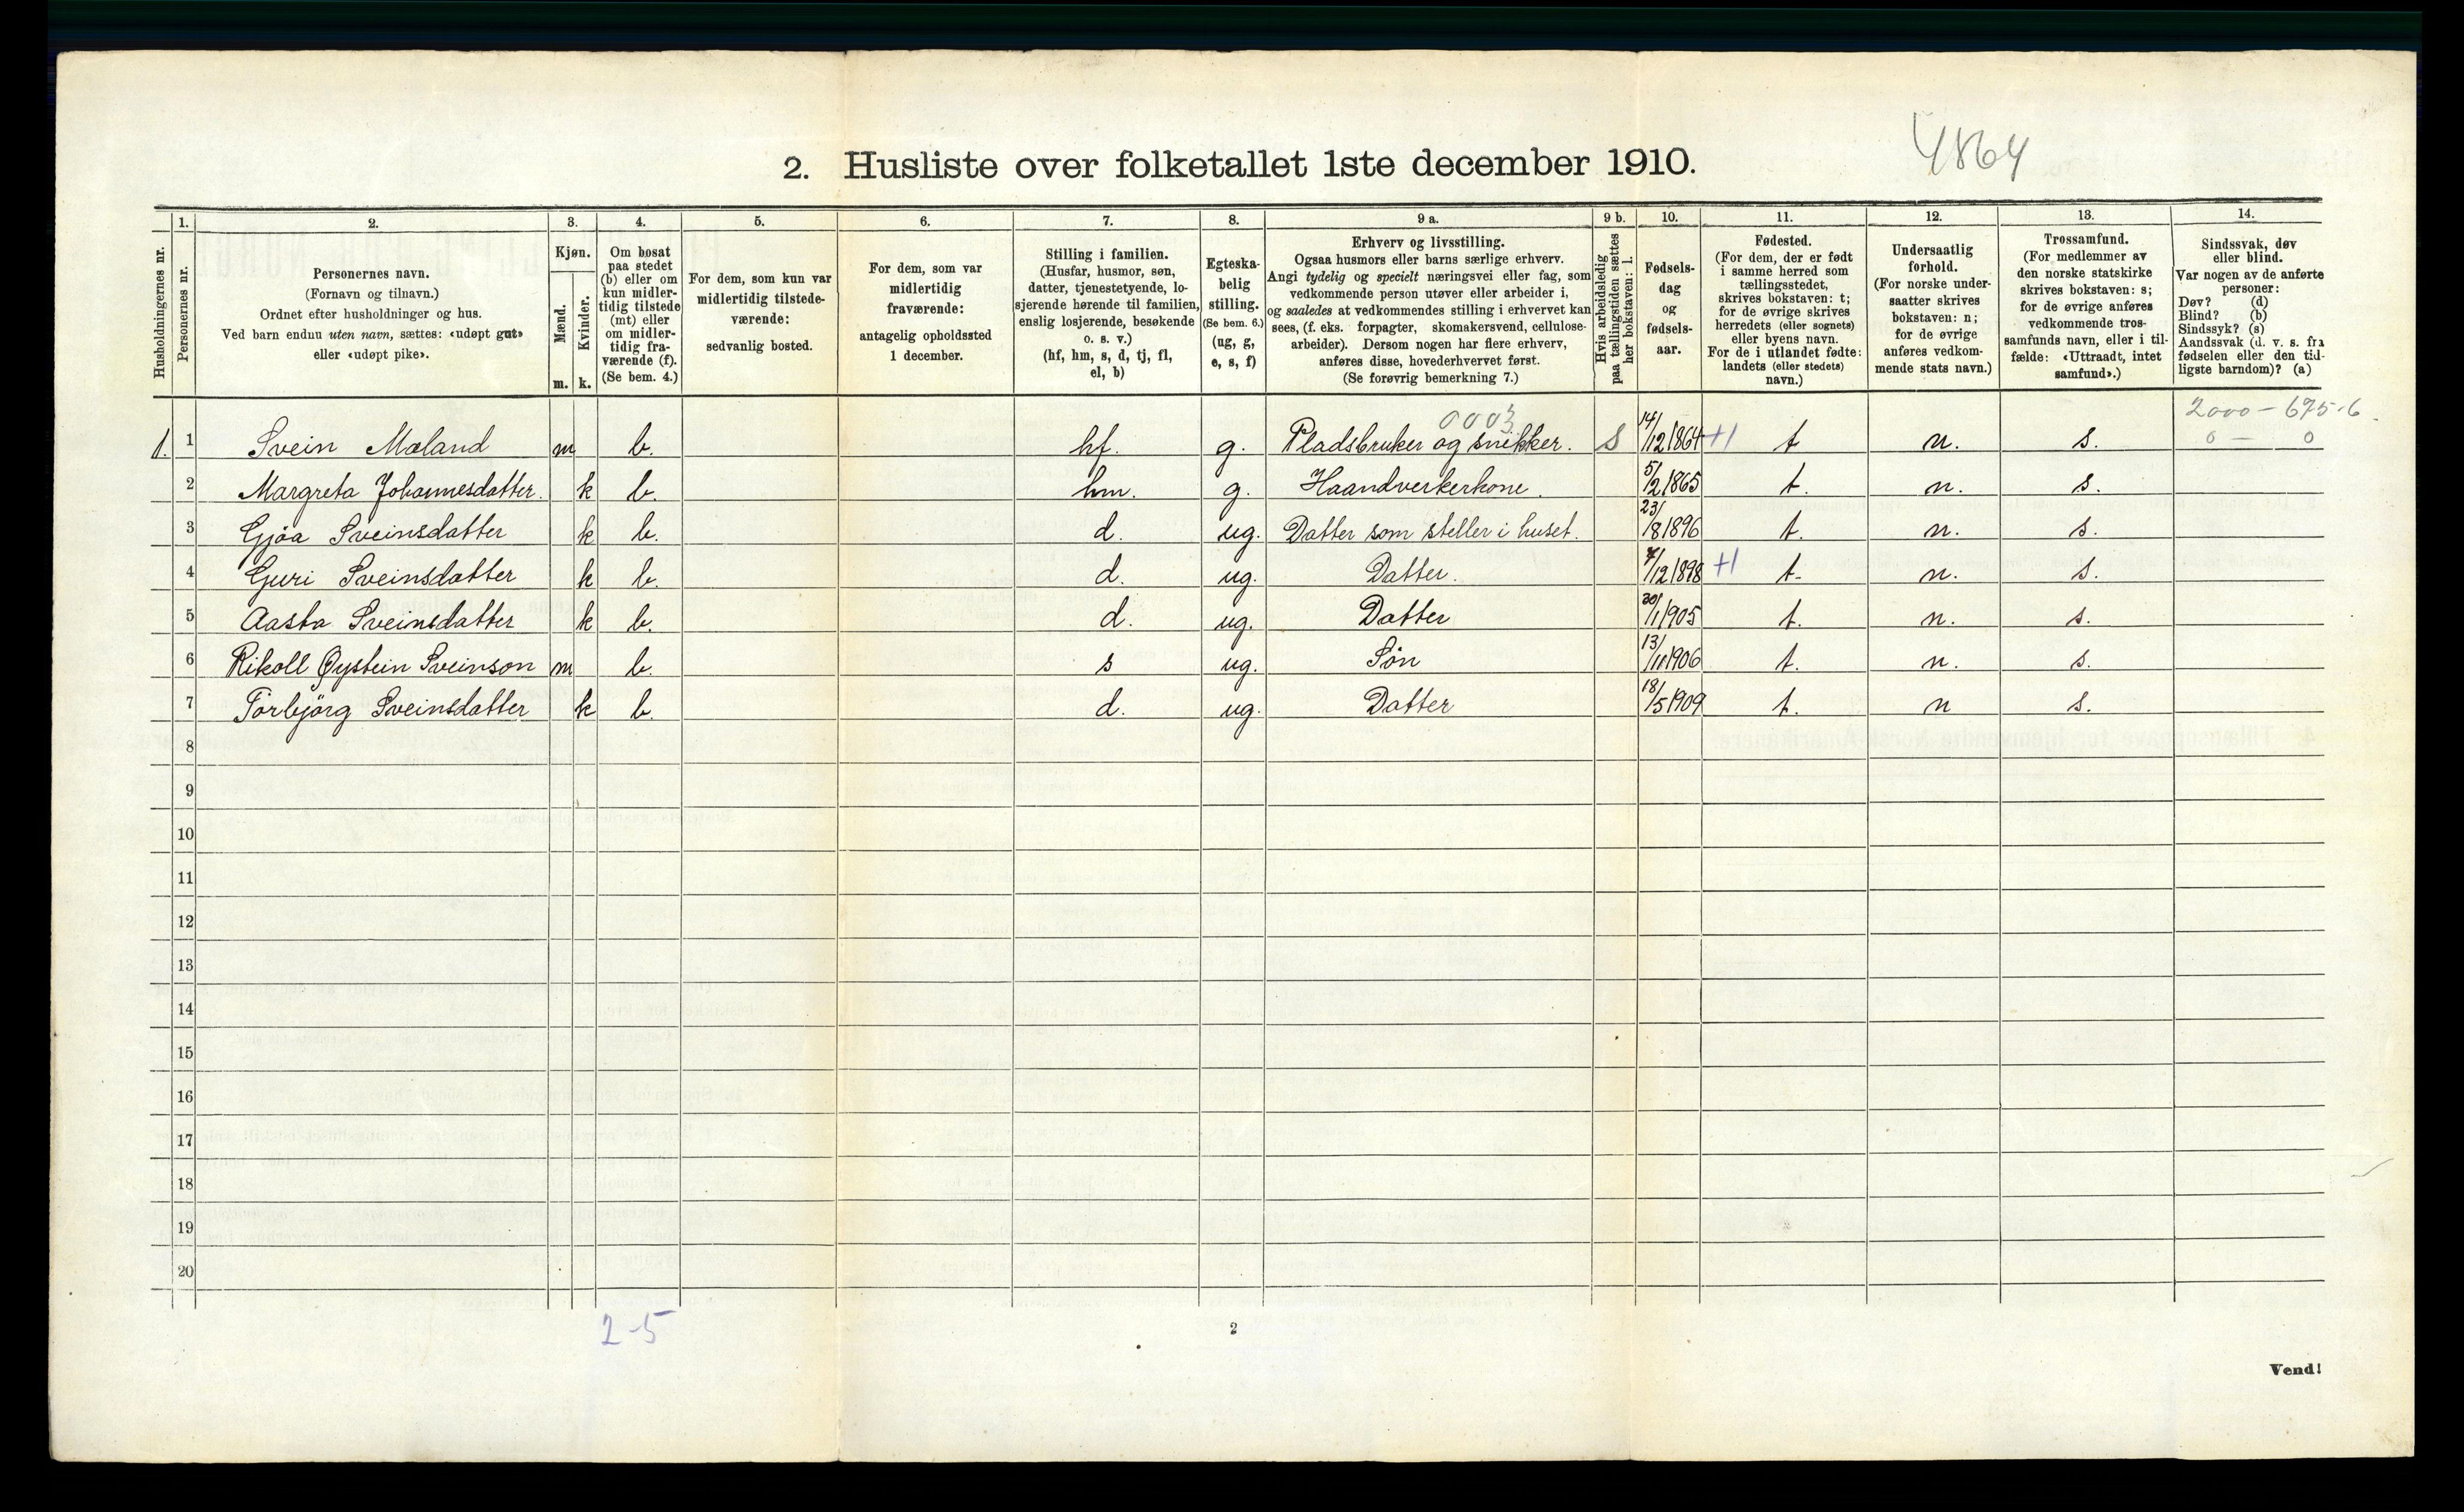 4864
2. Husliste over folketallet 1ste december 1910.
Husholdningernes nr.
1.
Personernes nr.
2.
Personernes navn.
(Fornavn og tilnavn.)
Ordnet efter husholdninger og hus.
Ved barn endnu uten navn, sættes: «udøpt gut»
eller «udøpt pike».
3.
Kjøn.
Mænd.
Kvinder.
m. k.
4.
Om bosat
paa stedet
(b) eller om
kun midler-
tidig tilstede
(mt) eller
om midler-
tidig fra-
værende (f).
(Se bem. 4.)
5.
For dem, som kun var
midlertidig tilstede-
værende:
sedvanlig bosted.
6.
For dem, som var
midlertidig
fraværende:
antagelig opholdssted
1 december.
7.
Stilling i familien.
(Husfar, husmor, søn,
datter, tjenestetyende, lo-
sjerende hørende til familien,
enslig losjerende, besøkende
o. s. v.)
(hf, hm, s, d, tj, fl,
el, b)
8.
Egteska-
belig
stilling.
(Se bem. 6.)
(ug, g,
e, s, f)
9 a.
Erhverv og livsstilling.
Ogsaa husmors eller barns særlige erhverv.
Angi tydelig og specielt næringsvei eller fag, som
vedkommende person utøver eller arbeider i,
og saaledes at vedkommendes stilling i erhvervet kan
sees, (f. eks. forpagter, skomakersvend, cellulose-
arbeider). Dersom nogen har flere erhverv,
anføres disse, hovederhvervet først.
(Se forøvrig bemerkning 7.)
9 b.
Hvis arbeidsledig
paa tællingstiden sættes
her bokstaven: l.
10.
Fødsels-
dag
og
fødsels-
aar.
11.
Fødested.
(For dem, der er født
i samme herred som
tællingsstedet,
skrives bokstaven: t;
for de øvrige skrives
herredets (eller sognets)
eller byens navn.
For de i utlandet fødte:
landets (eller stedets)
navn.)
12.
Undersaatlig
forhold.
(For norske under-
saatter skrives
bokstaven: n;
for de øvrige
anføres vedkom-
mende stats navn.)
13.
Trossamfund.
(For medlemmer av
den norske statskirke
skrives bokstaven: s;
for de øvrige anføres
vedkommende tros-
samfunds navn, eller i til-
fælde: «Uttraadt, intet
samfund».)
14.
Sindssvak, døv
eller blind.
Var nogen av de anførte
personer:
Døv? (d)
Blind? (b)
Sindssyk? (s)
Aandssvak (d. v. s. fra
fødselen eller den tid-
ligste barndom)? (a)
0003 2000 - 675-6
1. 1 Svein Mæland m b. hf. g. Pladsbruker og snekker. S 14/12 1864 +1 t n. s. 0 — 0
2 Margreta Johannesdatter. k b. hm. g. Haandverkerkone. 5/2 1865 t. n. s.
3 Gjöa Sveinsdatter k b. d. ug. Datter som steller i huset. 23/8 1896 t. n. s.
4 Guri Sveinsdatter k b. d. ug. Datter. 7/12 1898 +1 t. n. s.
5 Aasta Sveinsdatter k b. d. ug. Datter 30/1 1905 t. n. s.
6 Rikoll Øystein Sveinson m b. s ug. Søn 13/11 1906 t. n. s.
7 Torbjörg Sveinsdatter k b. d. ug. Datter 18/5 1909 t. n s.
8
9
10
11
12
13
14
15
16
17
18
19
20
2-5
2
Vend!